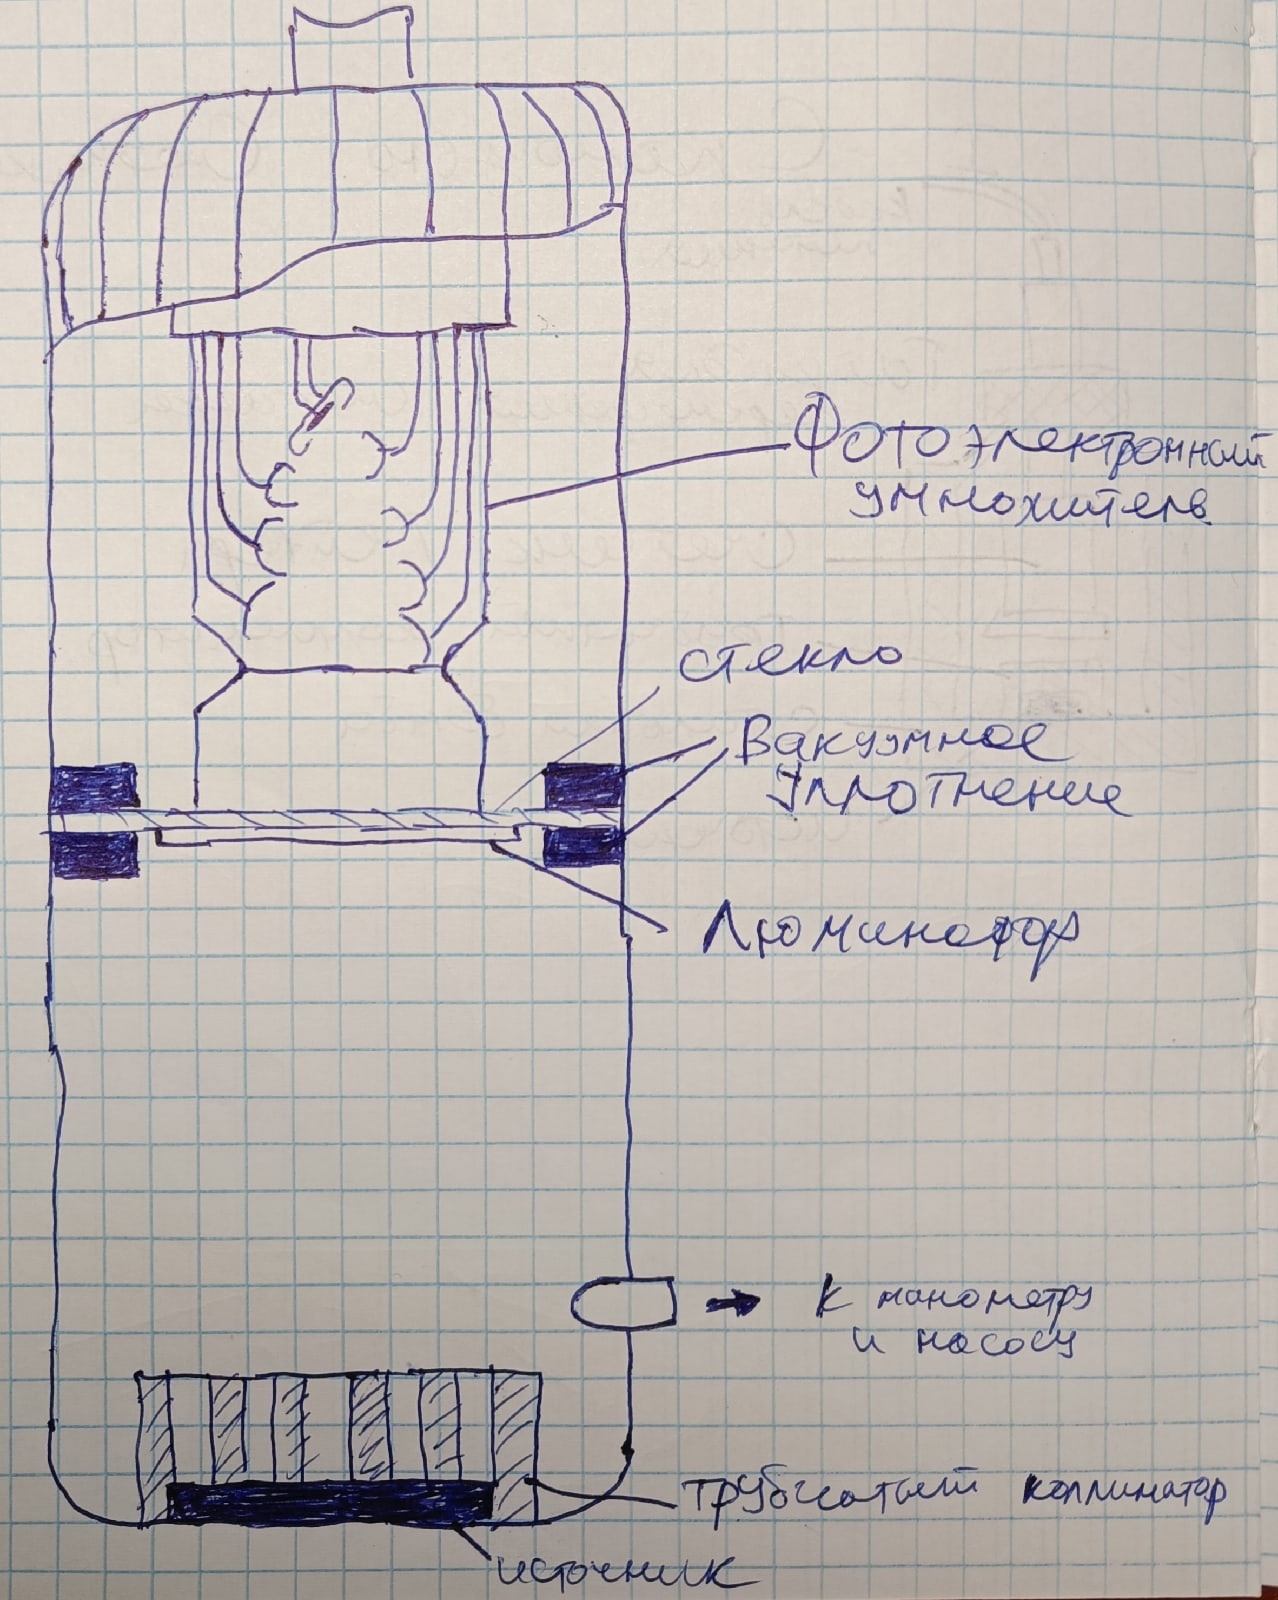 Фотоэлектронный
умножитель
стекло
Вакуумное
Уплотнение
Люминофор
К манометру
и насосу
трубчатый коллиматор
источник